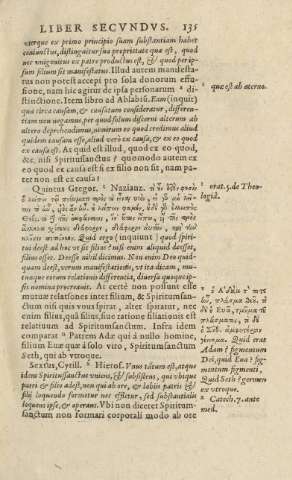 LIBER SECVNDVS. 135
ex primo principio suam substantiam habet
coniunctus, distinguitur sua proprietate quæ est, quod
nec vnigenitus ex patre productus est, & quod per ip-
sum filium sit manifestatus. Illud autem manifesta-
tus non potest accipi pro sola donorum effu-
sione, nam hic agitur de ipsa personarum
distinctione. Item libro ad Ablabiũ. Eam (inquit)
quæ circa causam, & causatum consideratur, differen-
tiam non negamus, per quod solum discerni alterum ab
altero deprehendimus, nimirum eo quod credimus aliud
quidem causam esse, aliud vero ex causa, & ex eo quod ex
ex causa est. At quid est illud, quod ex eo quod,
&c. nisi Spiritussanctus? quomodo autem ex
eo quod ex causa est si ex filio non sit, nam pa-
ter non est ex causa?
quæ est ab æterno.
Quintus Gregor. Nazianz.
Quid ergo (inquiunt) quod spiri-
tui deest ad hoc vt sit filius? nisi enim aliquid deesset,
filius esset. Deesse nihil dicimus. Non enim Deo quid-
quam deest, verum manifestationis, vt ita dicam, mu-
tuæque eorum relationis differentia, diuersa quoque ip-
sis nomina procreauit. At certe non possunt esse
mutuæ relationes inter filium, & Spiritumsan-
ctum nisi quis vnus spirat, alter spiratur, nec
enim filius, quâ filius, siue ratione filiationis est
relatiuum ad Spiritumsanctum. Infra idem
comparat Patrem Adæ qui à nullo homine,
filium Euæ quæ à solo viro, Spiritumsanctum
Seth, qui ab vtroque.
orat. 5. de Theo-
logiâ.
Quid erat
Adam? figmentum
Dei, quid Eua? fig-
mentum figmenti.
Quid Seth? germen
ex vtroque.
Sextus, Cyrill. Hierof. Vnus tãtum est, atque
idem Spiritussanctus viuens, & subsistens, qui vbique
patri & filio adest, non qui ab ore, & labiis patris &
filij loquendo formetur nec effletur, sed substantialis
loquens ipse, & operans. Vbi non diceret Spiritum-
sanctum non formari corporali modo ab ore
Catech. 7. ante
med.